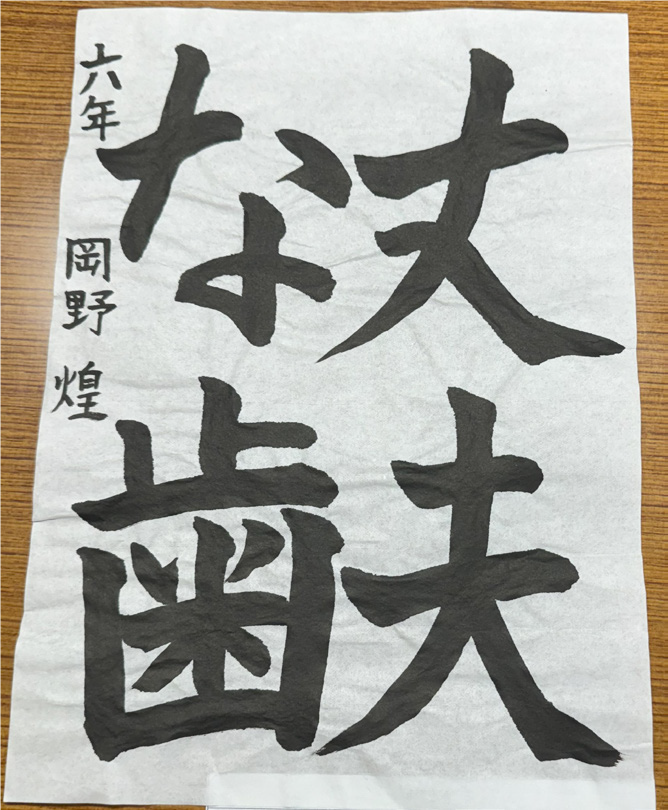 丈夫
な歯
六年 岡野 煌